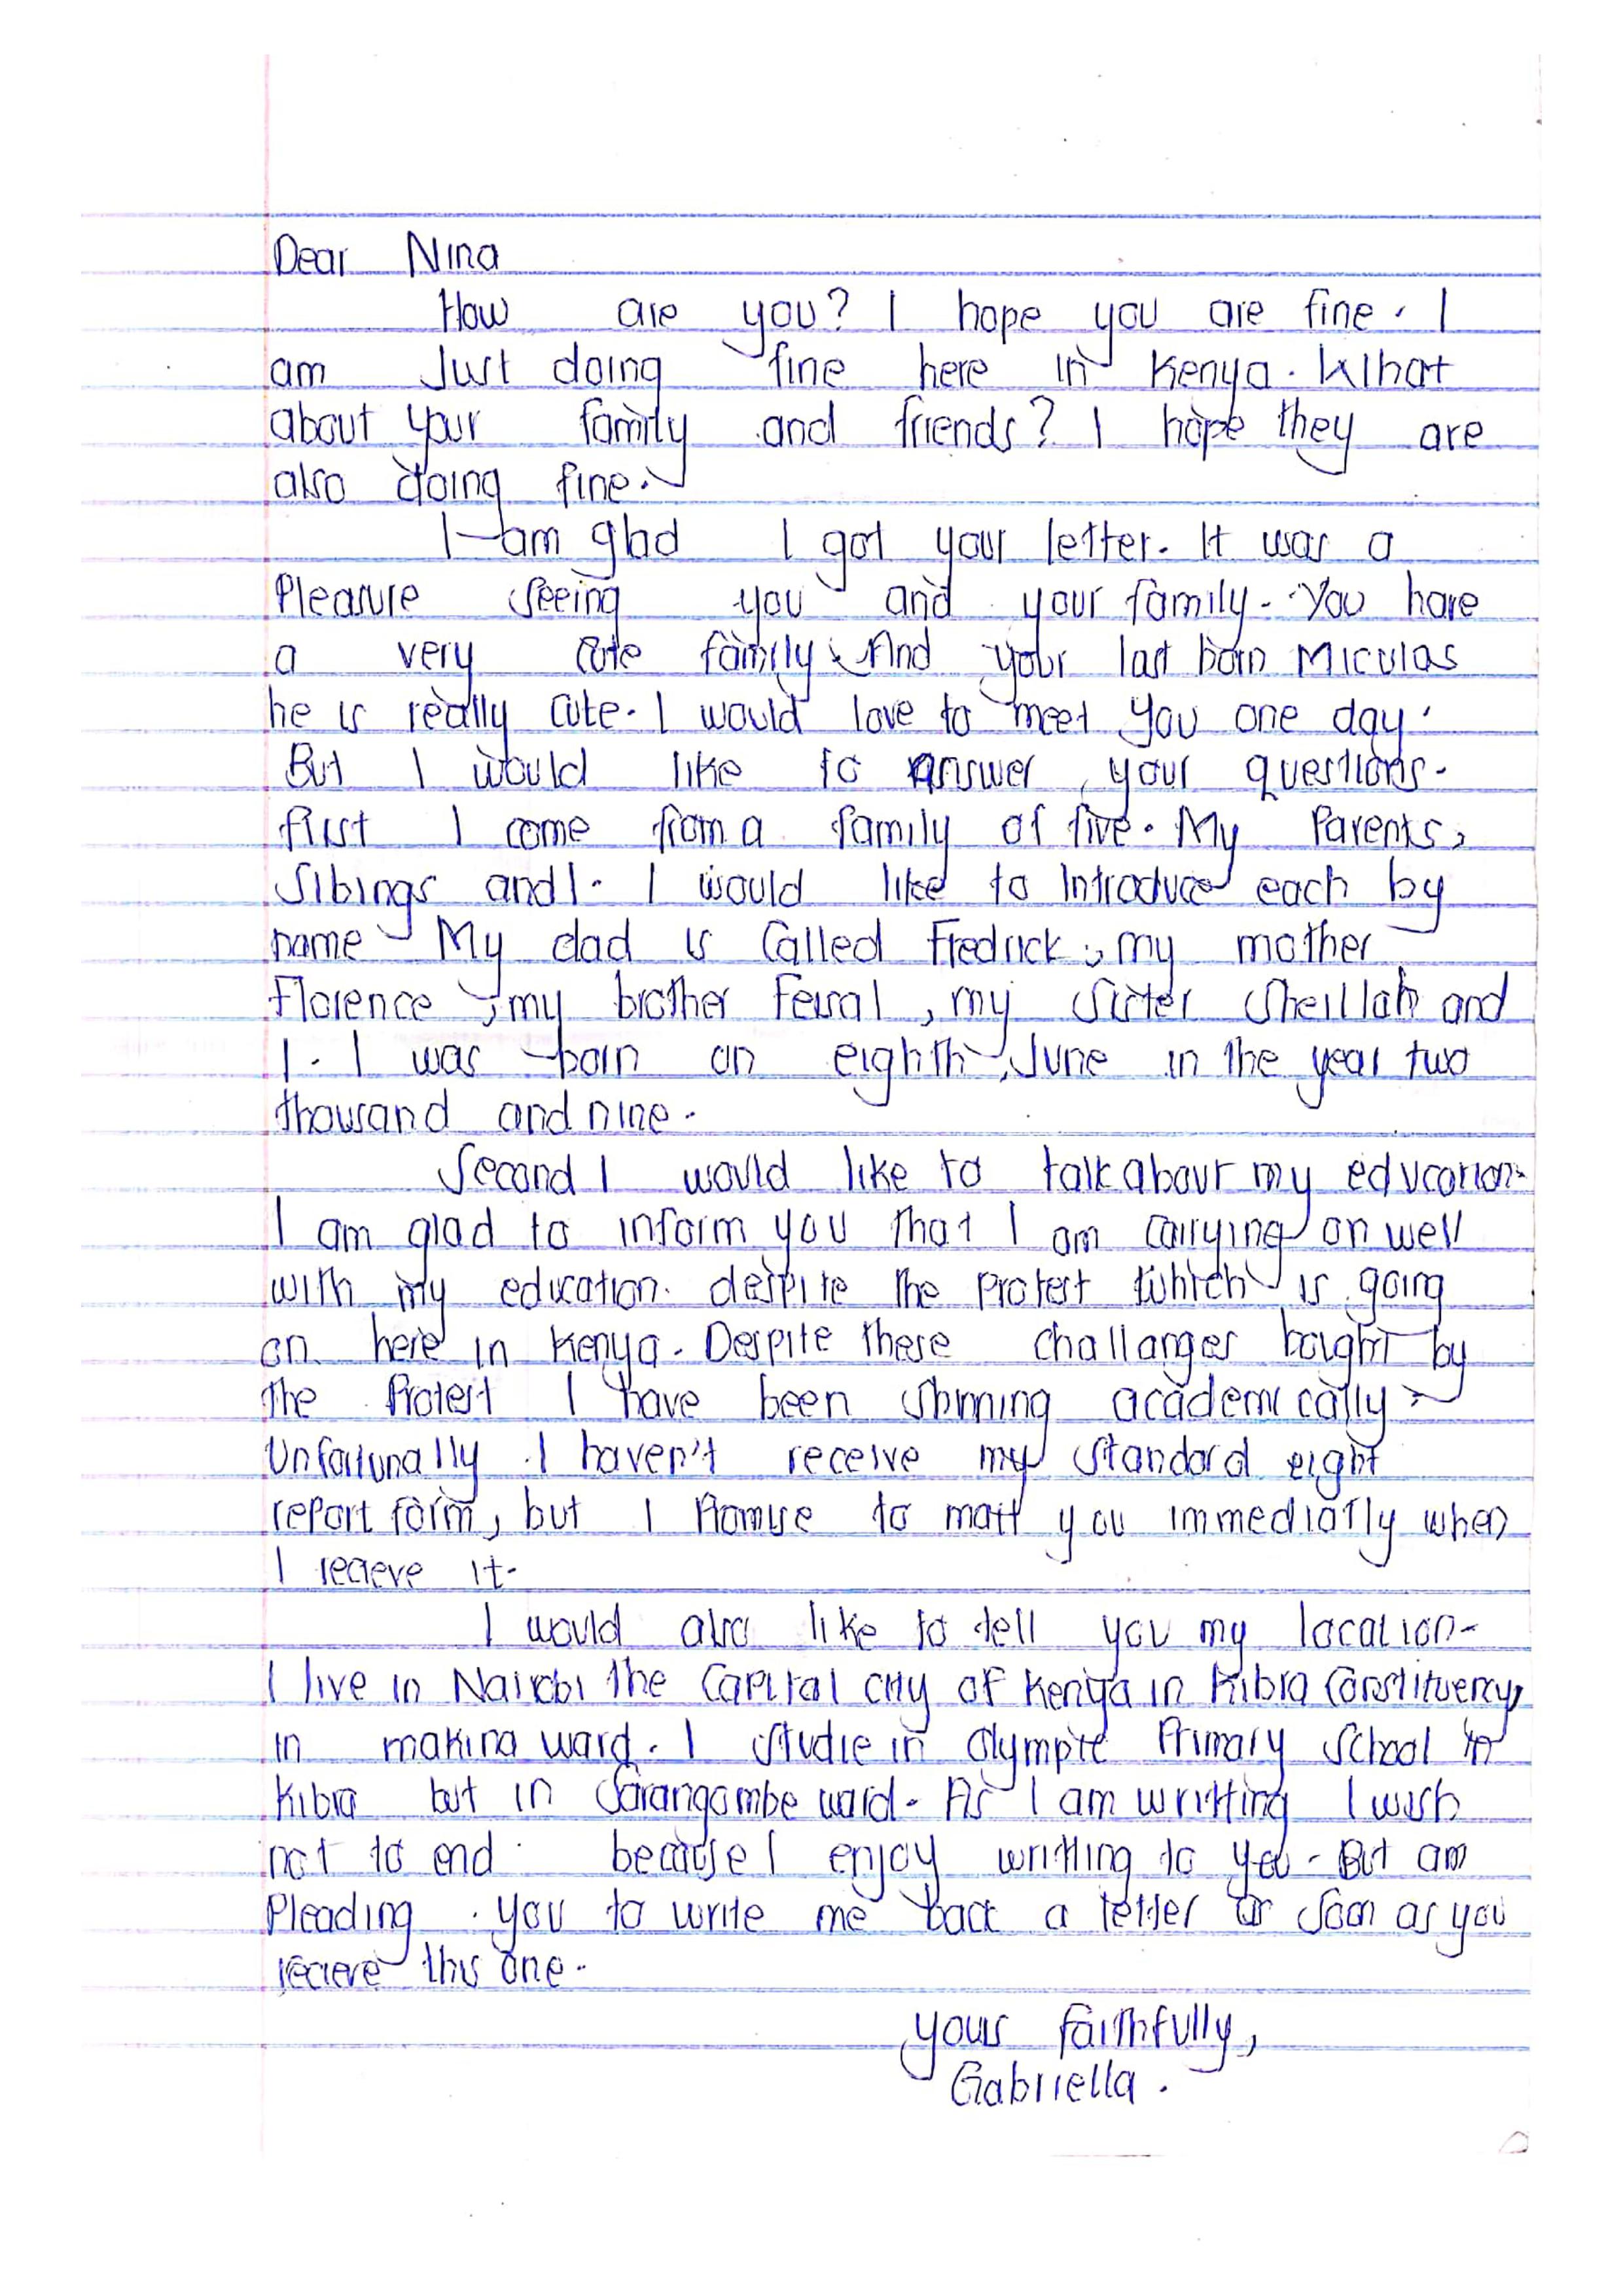 Dear Nina
How are you? I hope you are fine. I
am Just doing fine here in Kenya. What
about your family and friends? I hope they are
also doing fine.
I am glad I got your letter. It was a
Pleasure seeing you and your family. You have
a very cute family. And your last born Miculas
he is really cute. I would love to meet you one day.
But I would like to answer your questions.
first I come from a family of five. My Parents,
Sibings and I. I would like to Introduce each by
name My dad is Called Fredrick, my mother
Florence, my brother Feisal, my sister Sheillah and
I. I was born on eighth June in the year two
thousand and nine.
Second I would like to talk about my education.
I am glad to inform you that I am carrying on well
with my education. despite the protest which is going
on here in Kenya. Despite these challanges bought by
the Protest I have been shinning academically.
Unfortunally I haven't receive my standard eight
report form, but I Promise to you immediatly when
I recieve it.
I would also like to tell you my location.
I live in Nairobi the Capital city of Kenya in Kibra Constituency,
in makina ward. I studie in Olympic Primary School in
Kibra but in Sarangombe ward. As I am writting I wish
not to end because I enjoy writting to you. But am
Pleading you to write me back a letter as soon as you
recieve this one.
yours faithfully,
Gabriella.